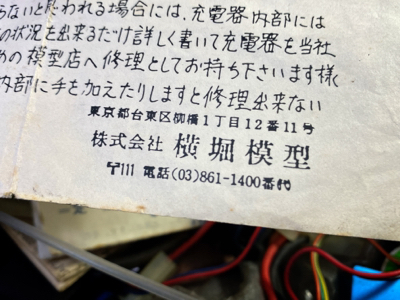 らないと思われる場合には、充電器内部には
の状況を出来るだけ詳しく書いて充電器を当社
めの模型店へ修理としてお持ち下さいます様
内部に手を加えたりしますと修理出来ない
東京都台東区柳橋1丁目12番11号
株式会社 横堀模型
〒111 電話(03)861-1400番代